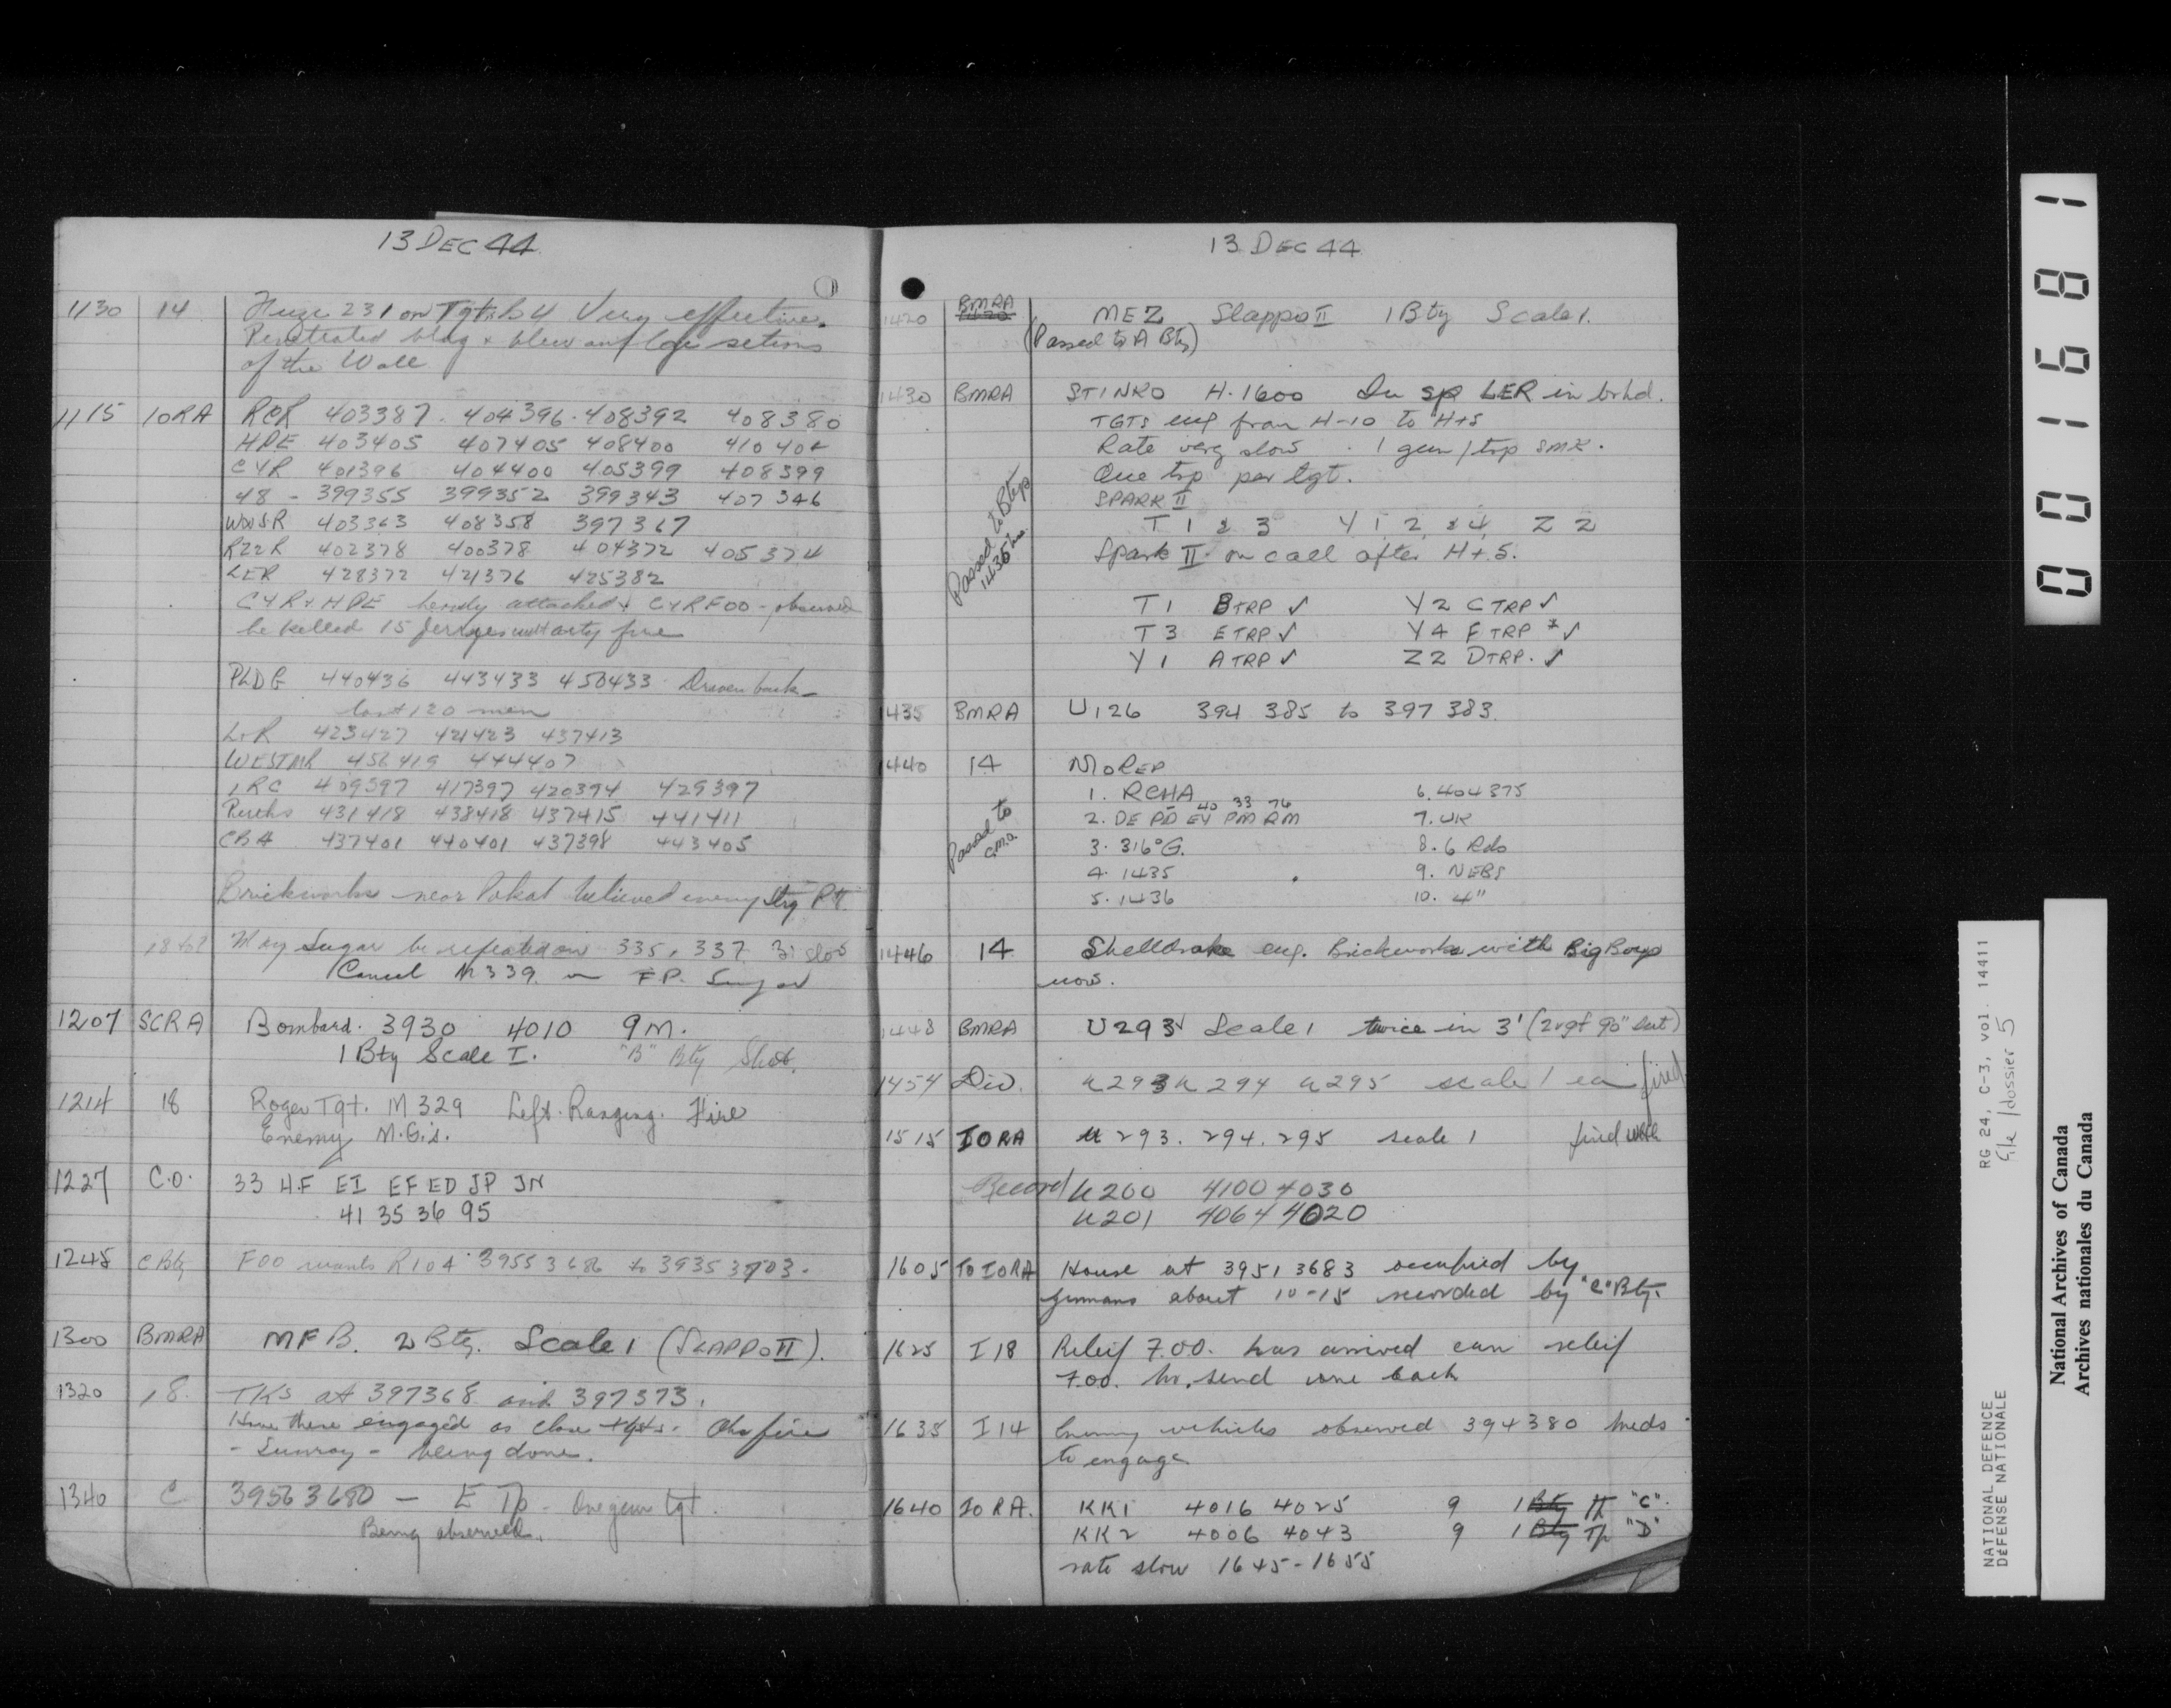 13 DEC 44
1130 14 Fuze 231 on Tgt B4 Very effective.
Penetrated bldg & blew out
of the Wall
1115 IORA RCR 403387. 404396. 408392 408380
HPE 403405 407405 408400
CYR 401396 404400 405399 408399
48 - 399355 399352 399343 407346
403363 408358 397367
R22R 402378 400378 404372 405374
LER 428372 421376 425382
CYR & HPE attached. CYR FOO - observed
he killed 15 Jerries with arty fire
PLDG 440436 443433 450433. Driven back -
lost 120 men
LER 423427 421423 437413
WESTMR 456419 444407
IRC 409397 417397 420394 429397
Perths 431418 438418 437415 441411
CBH 437401 440401 437398 443405
Brickworks near believed enemy
May Sugar be repeated on 335, 337, slow
Cancel M339. FP.
1207 SCRA Bombard. 3930 4010 9M.
1 Bty Scale I. "B" Bty Shot.
1214 18 Roger Tgt. M329 Left. Ranging. Fire
Enemy M.G.s.
1227 C.O. 33 HF EI EF ED JP JN
41 35 36 95
1245 C Bty FOO wants R104 39553686 to 39353703.
1300 BMRA MFB. 2 Bty. Scale 1 (SLAPPO II).
1320 18. TKS at 397368 and 397373.
Have these engaged as close tgts. Obs fire
- Sunray - being done.
1340 C 39563680 — E Tp - One gun tgt.
Being observed.
13 DEC 44
1420 BMRA MEZ Slappo II 1 Bty Scale 1.
(Passed to A Bty)
1430 BMRA STINKO H-1600 In sp LER in brhd.
TGTS eng from H-10 to H+5
Rate very slow. 1 gun/trp SMK.
One trp per tgt.
SPARK II
T 1 & 3 Y 1 2 & 4 Z 2
Spark II on call after H+5.
Passed to Btys
1435 hrs.
T1 B TRP ✓ Y2 C TRP ✓
T3 E TRP ✓ Y4 F TRP * ✓
Y1 A TRP ✓ Z2 D TRP. ✓
1435 BMRA U126 394 385 to 397 383.
1440 14 MOREP
1. RCHA 6. 404375
40 33 76
2. DE PD EY PM RM 7. UK
3. 316°G. 8. 6 Rds
4. 1435 9. NEBS
5. 1436 10. 4"
Passed to
C.M.O.
1446 14 Shelldrake eng. Brickworks with Big Boys
now.
1448 BMRA U293 Scale 1 twice in 3'
1454 Div. U293 U294 U295 scale 1 ea fired
1515 IORA U293. 294. 295 scale 1 fired
Record U200 4100 4030
U201 4064 4020
1605 To IORA House at 3951 3683 occupied by
germans about 10-15 recorded by "C" Bty.
1625 I 18 Relief F.OO. has arrived can relief
F.OO. send one back
1635 I 14 Enemy vehicles observed 394380 meds
to engage
1640 IORA. KK1 4016 4025 9 1 Bty Tp "C".
KK2 4006 4043 9 1 Bty Tp "D"
rate slow 1645-1655
001681
RG 24, C-3, vol. 14411
file/dossier 5
NATIONAL DEFENCE
DÉFENSE NATIONALE
National Archives of Canada
Archives nationales du Canada